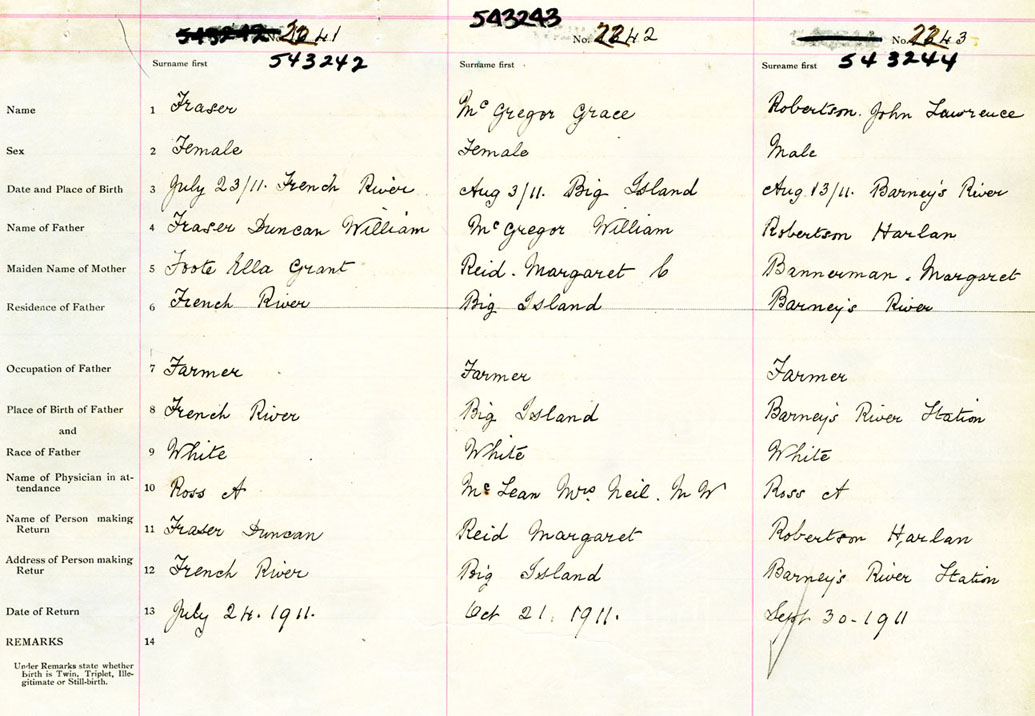 543243
No. 2241 No. 2242 No. 2243
543242 543244
Surname first Surname first Surname first
Name 1 Fraser McGregor Grace Robertson. John Lawrence
Sex 2 Female Female Male
Date and Place of Birth 3 July 23/11. French River Aug 3/11. Big Island Aug 13/11. Barney's River
Name of Father 4 Fraser Duncan William McGregor William Robertson Harlan
Maiden Name of Mother 5 Foote Ella Grant Reid. Margaret C Bannerman. Margaret
Residence of Father 6 French River Big Island Barney's River
Occupation of Father 7 Farmer Farmer Farmer
Place of Birth of Father 8 French River Big Island Barney's River Station
and
Race of Father 9 White White White
Name of Physician in at-
tendance 10 Ross A McLean Mrs Neil. M W Ross A
Name of Person making
Return 11 Fraser Duncan Reid Margaret Robertson Harlan
Address of Person making
Retur 12 French River Big Island Barney's River Station
Date of Return 13 July 24. 1911. Oct 21. 1911. Sept 30-1911
REMARKS 14
Under Remarks state whether
birth is Twin, Triplet, Ille-
gitimate or Still-birth.